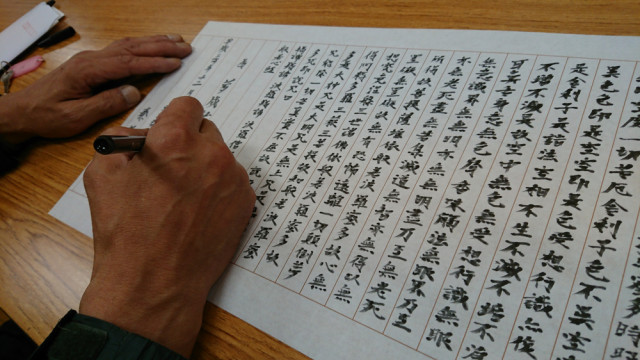 多時
度一切苦厄舎利子色不異空
異色色即是空空即是色受想行識
是舎利子是諸法空相不生不滅不垢不浄
不増不減是故空中無色無受想行識無眼
耳鼻舌身意無色声香味触法無眼界乃至
無意識界無無明亦無無明尽乃至無老死
亦無老死尽無苦集滅道無智亦無得以無
所得故菩提薩埵依般若波羅蜜多故心無
罣礙無罣礙故無有恐怖遠離一切顛倒夢
想究竟涅槃三世諸仏依般若波羅蜜多故
得阿耨多羅三藐三菩提故知般若波羅蜜
多是大神呪是大明呪是無上呪是
呪能除一切苦真実不虚故
多呪即説呪曰
羯諦羯諦波羅